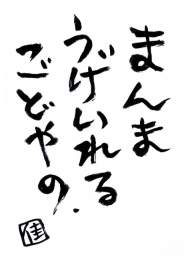 まんま
うけいれる
ごどやの.
佳